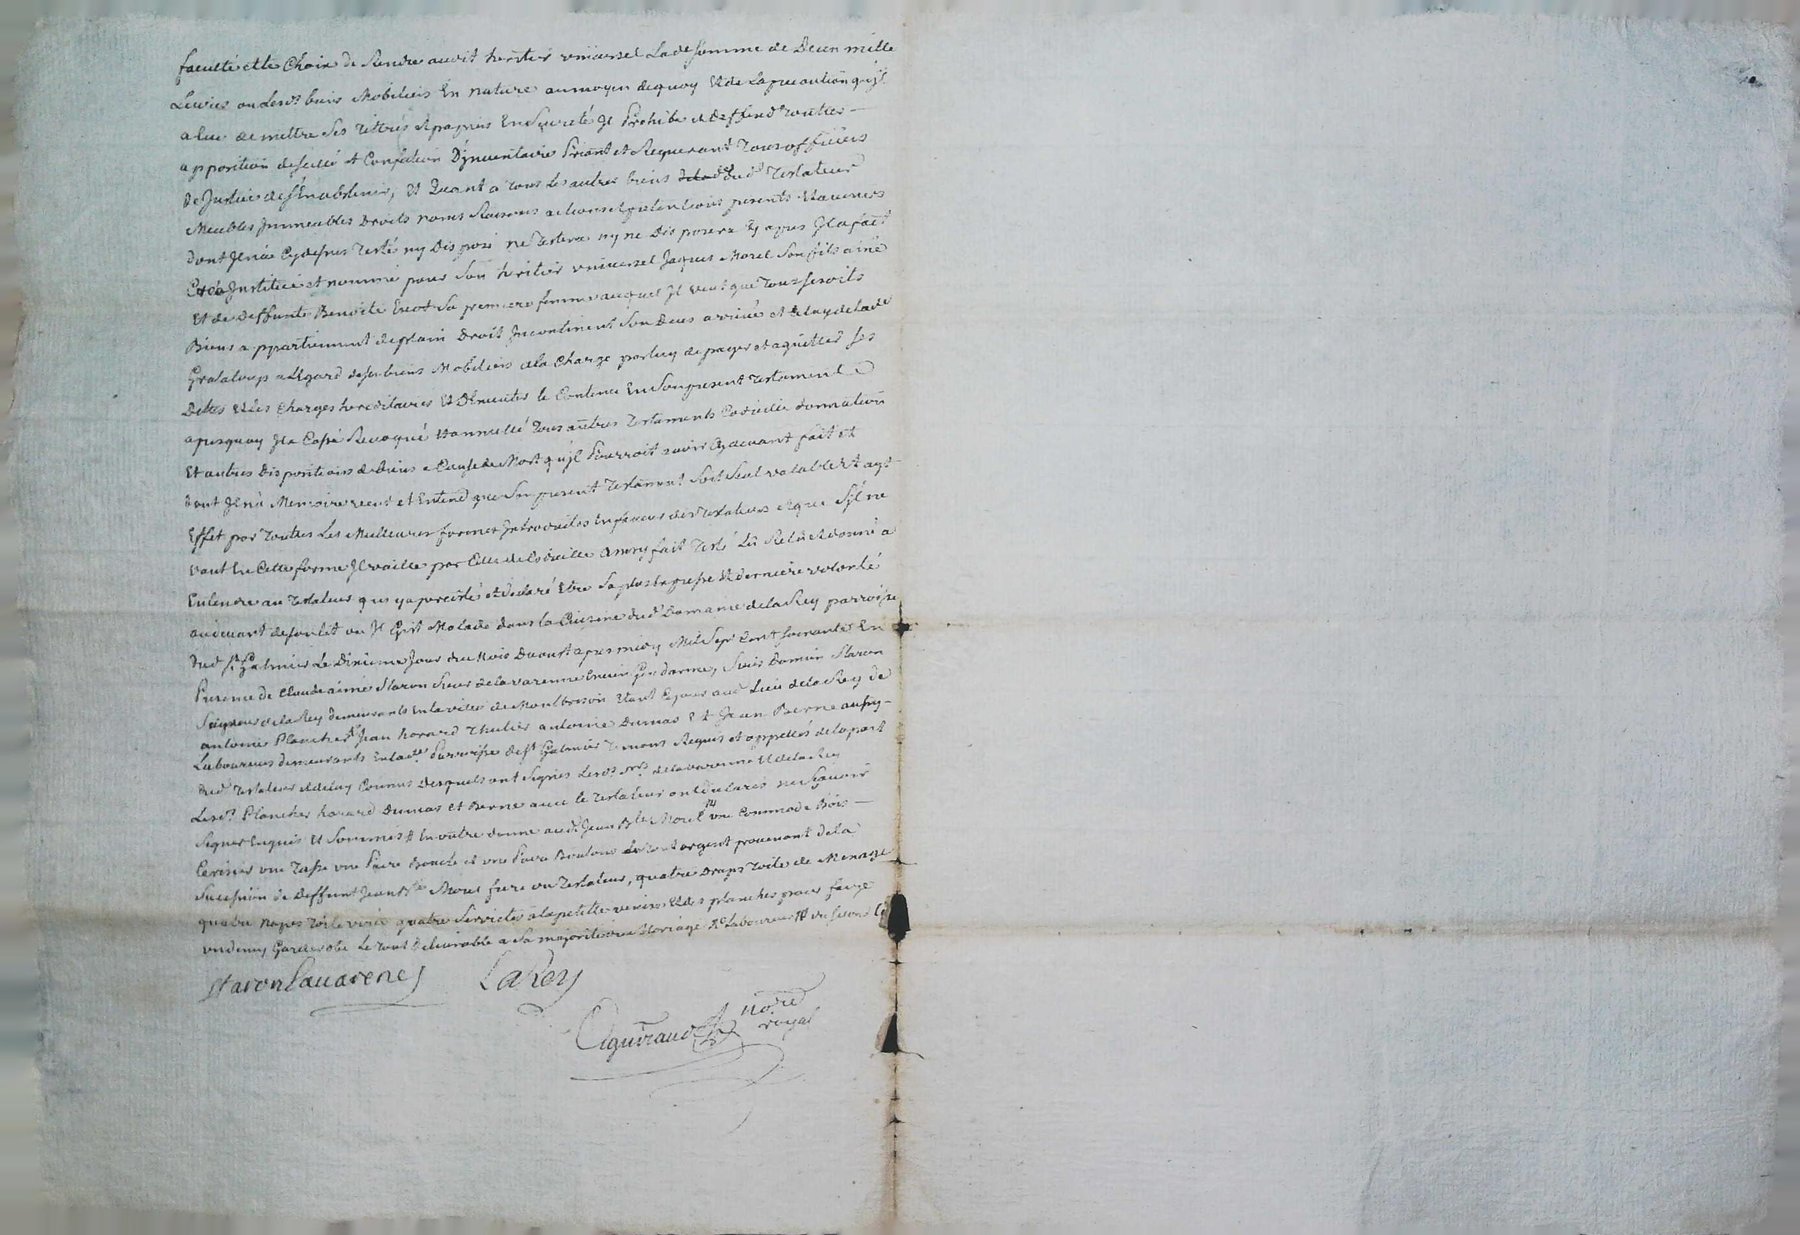 faculté et le Choix de Rendre audit heritier universel Lade somme de Deux mille
Livres ou lesds. biens Mobiliers En nature au moyen dequoy Et de La precaution qu'jl
a Eue de mettre ses Tittres & papiers En Sureté Il Prohibe et Deffend toutes
apposition de scellé et Confection D'jnventaire Priant et Requerant Tous officiers
de Justice de s'En abstenir, Et Quant a tous Les autres biens dud. Testateur
Meubles Jmmeubles Droits noms Raisons actions et pretentions presents Et avenirs
dont Il n'a Cy dessus Testé ny Disposé ne Testera ny ne Disposera Cy apres Il a fait
Creé Jnstitué et nommé pour Son heritier universel Jaques Morel Son fils ainé
Et de Deffunte Benoite sa premiere femme auquel Il veut que Tous sesdits
Biens appartiennent de plain Droit Jncontinent Son Deces arrivé et Celuy de lade.
Grataloup a l'Egard desd. biens Mobiliers a la Charge par luy de payer et aquitter ses
Dettes Et Les Charges hereditaires Et D'Executer le Contenu En Son present Testament
apresquoy Il a Cassé Revoqué Et annullé Tous autres Testaments Codicille donnation
Et autres Dispositions de Biens a Cause de Mort qu'jl Pourroit avoir Cy devant fait Et
dont Il n'a Memoire et Entend que Son present Testament Soit Seul valable Et ayt
Effet par Toutes Les Meilleures formes Jntroduites En faveur des Testateurs et que S'jl ne
vaut En Cette forme Il vaille par Celle de Codicille Ainsy fait Testé Lû Relû et donné a
Entendre au Testateur qui y a percisté et declaré Etre sa plus Expresse Et derniere volonté
au devant de son lit ou Il Gist Malade dans la Cuisine dud. Domaine de la Rey parroisse
dud. St. Galmier Le Dixieme Jour du Mois D'aoust apres midy Mil Sept Cent soixante En
Presence de Claude aimé Staron Sieur de la varenne Encien Gendarme, Sieur Damien Staron
Seigneur de la Rey demeurants En la ville de Montbrison Etant Ce jour aud. Lieu de la Rey de
antoine Planchet Jean horard Thulier antoine Dumas Et Jean Berne aussy
Laboureurs demeurants En lade. Parroisse de St. Galmier Temoins Requis et appellés de la part
dud. Testateur et de luy Connus Desquels ont Signés Lesds. Srs. de la varenne Et de la Rey
Lesds. Planchet horard Dumas et Berne avec le Testateur ont declarés ne Sçavoir
Signer Enquis Et Sommés # En outre donne aud. Jean Bte. Morel une Commode Bois
Cerisier une Tasse une Paire Boucle et une Paire Boutons Le tout argent provenant de la
Succession de Deffunt Jean Bte. Morel frere du Testateur, quatre Draps Toile de Menage
quatre Napes Toile quatre Serviettes a la petite venise Et des planches pour faire
un demy Garderobe Le tout Delivrable a sa majorité ou Mariage
Staron Lavarenes LaRey
Aguiraud nore.
royal